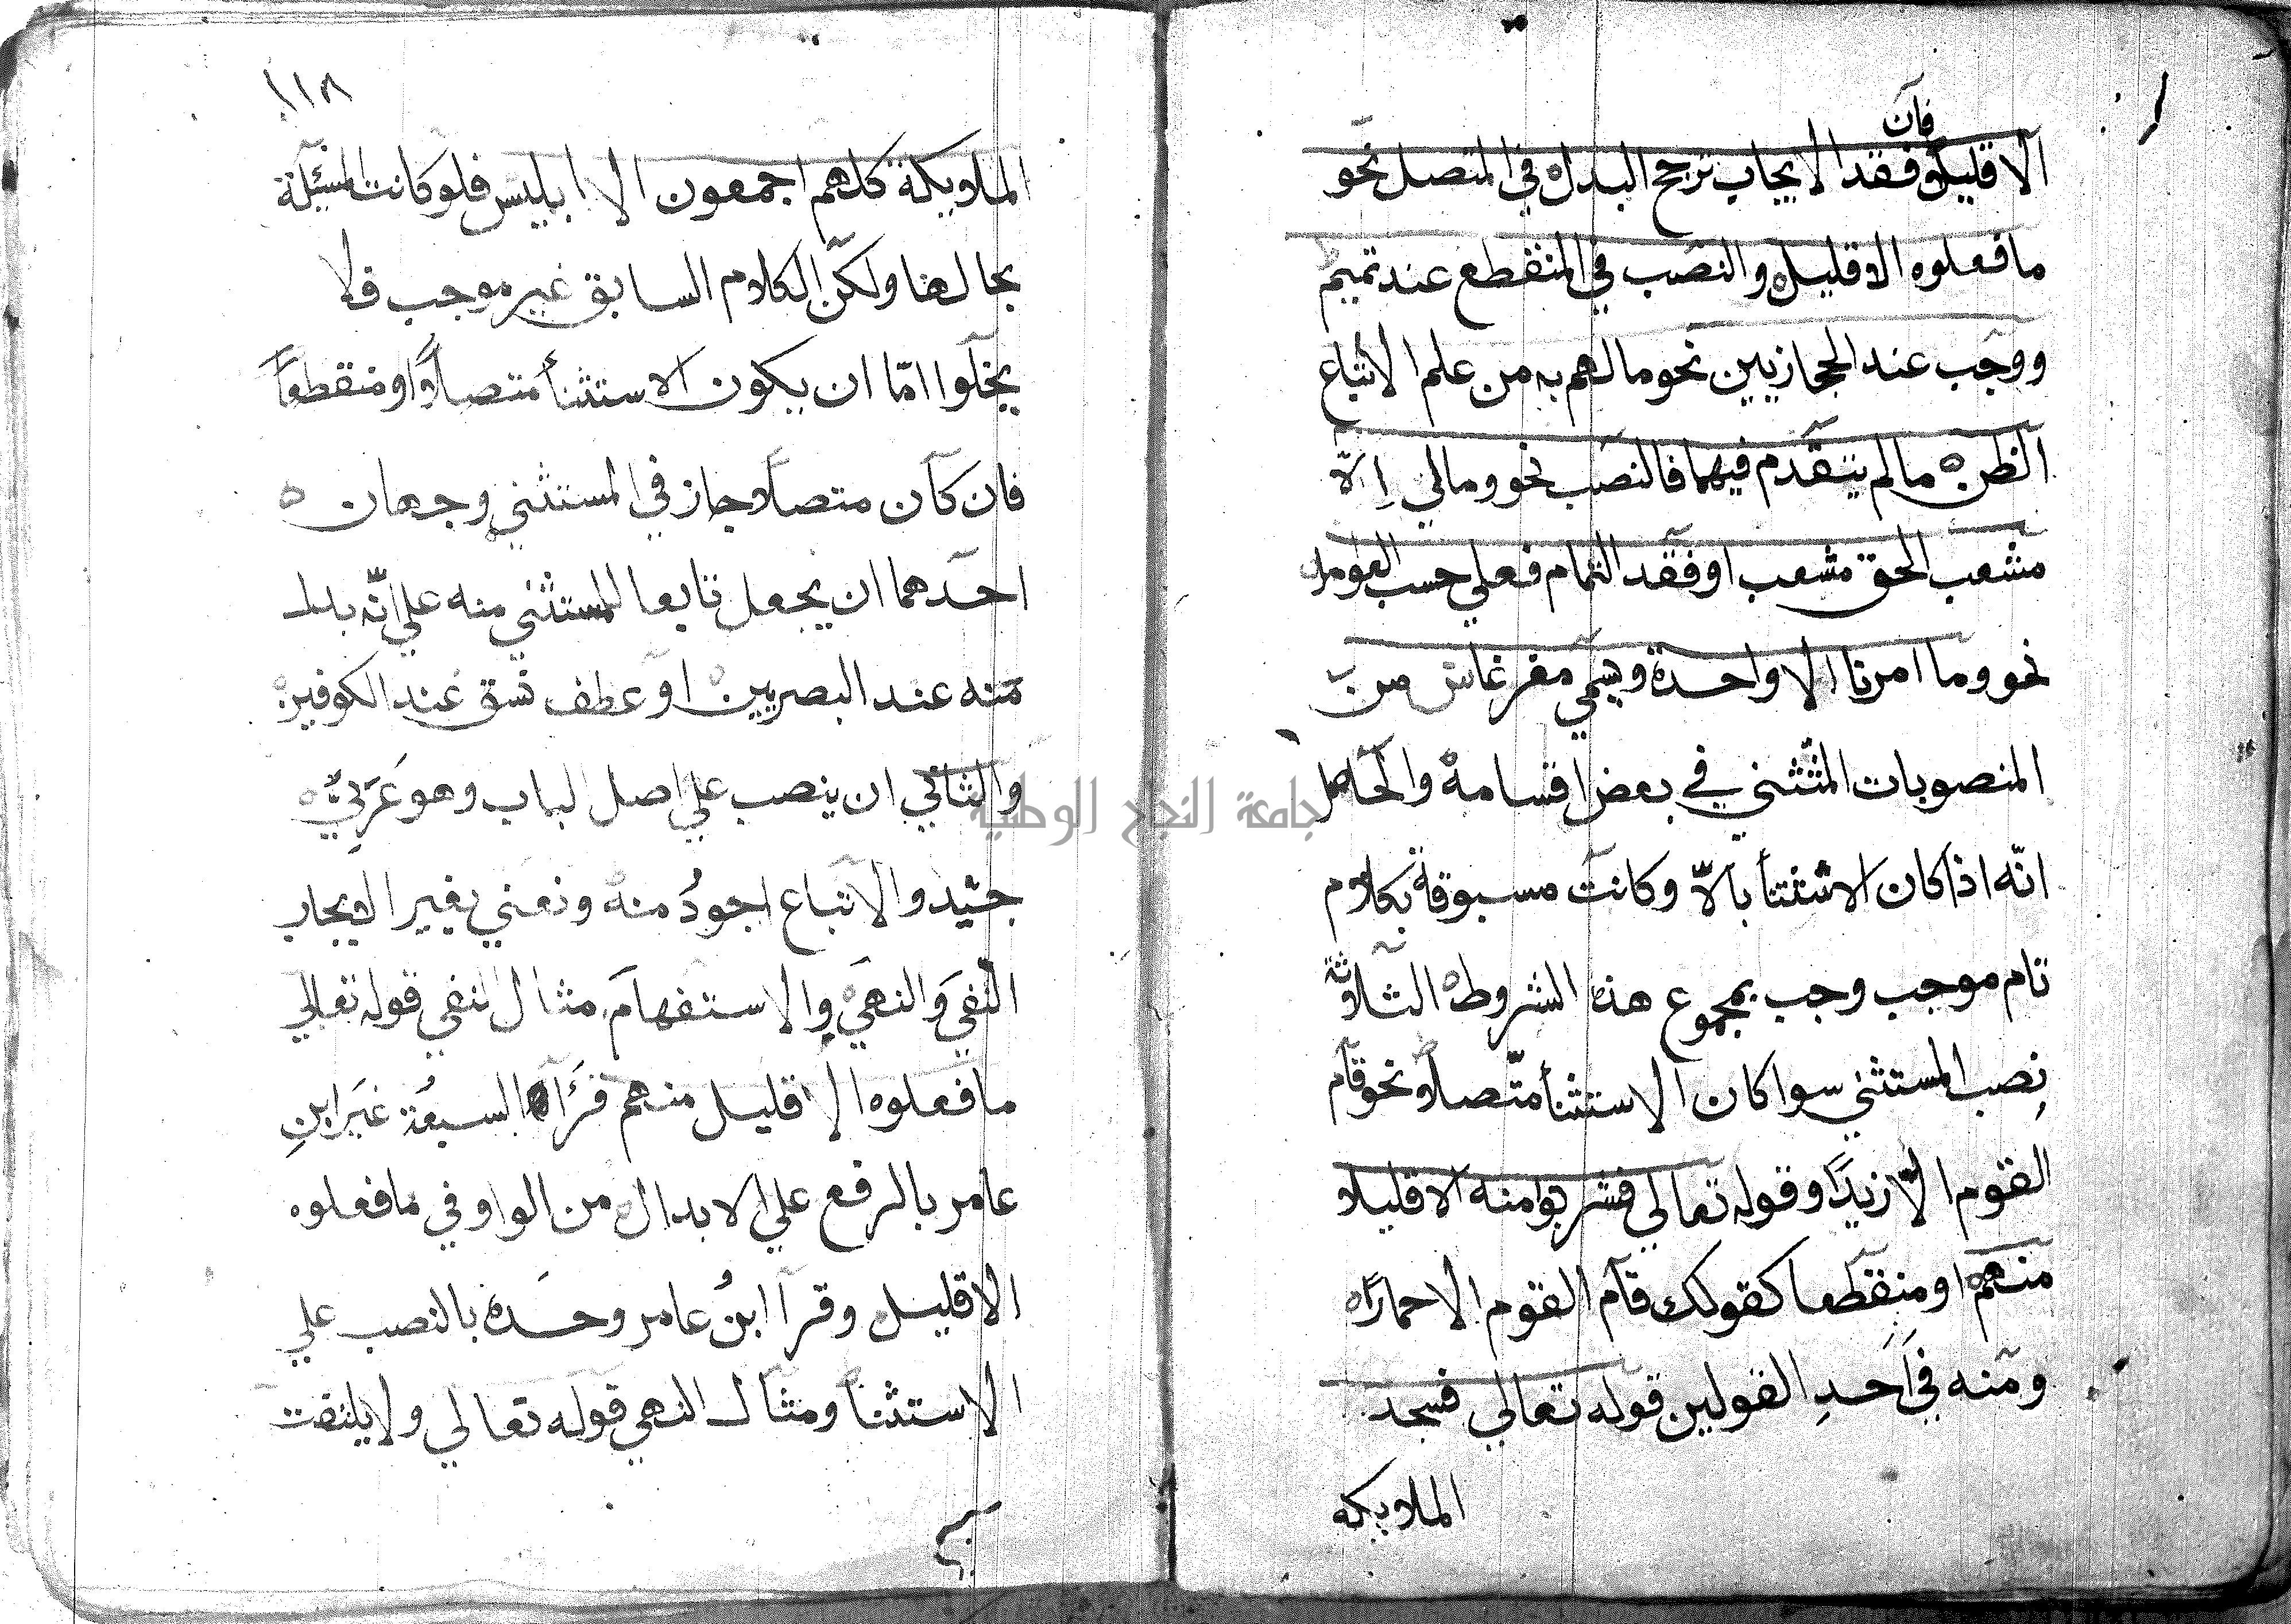 فان
الا قليلا فقد الايجاب ترجح البدل في المتصل نحو
ما فعلوه الا قليل والنصب في المنقطع عند تميم
ووجب عند الحجازيين نحو ما لهم به من علم الا اتباع
الظن ما لم يتقدم فيهما فالنصب نحو ومالي الا
مشعب الحق مشعب او فقد التمام فعلي حسب العوامل
نحو وما امرنا الا واحدة ويسمي مفرغا ش من
المنصوبات المتثني في بعض اقسامه والحاصل
انّه اذا كان الاشتثنأ بالاّ وكانت مسبوقة بكلام
تام موجب وجب بمجموع هذه الشروط الثلاثة
نصب المستثني سوا كان الاستثنأ متّصلا نحو قام
القوم الّا زيدًا وقوله تعالي فشربوا منه الا قليلا
منهم او منقطعا كقولك قام القوم الا حمارًا
ومنه في احدِ القولين قوله تعالي فسجد
الملايكه
١١٨
الملايكة كلهم اجمعون الا ابليس فلو كانت المسئلة
بحالها ولكنّ الكلام السابق غير موجب فلا
يخلوا امّا ان يكون الاستثنأ متصلاً او منقطعاً
فان كان متصلا جاز في المستثني وجهان ه
احدهما ان يجعل تابعا للمستثني منه علي انّه بدل
منه عند البصريين او عطف نسق عند الكوفيين
والثاني ان ينصب علي اصل الباب وهو عَرَبيٌّ
جيّد والاتباع اجودُ منه ونعني بغير الايجاب
النفي والنهي والاستفهام مثال النفي قوله تعالي
ما فعلوه الا قليل منهم قرأ السبعة غير ابنِ
عامر بالرفع علي الابدال من الواو في ما فعلوه
الا قليل وقرا ابنُ عامر وحده بالنصب علي
الاستثنأ ومثال النهي قوله تعالي ولا يلتفت
جامعة النجاح الوطنية